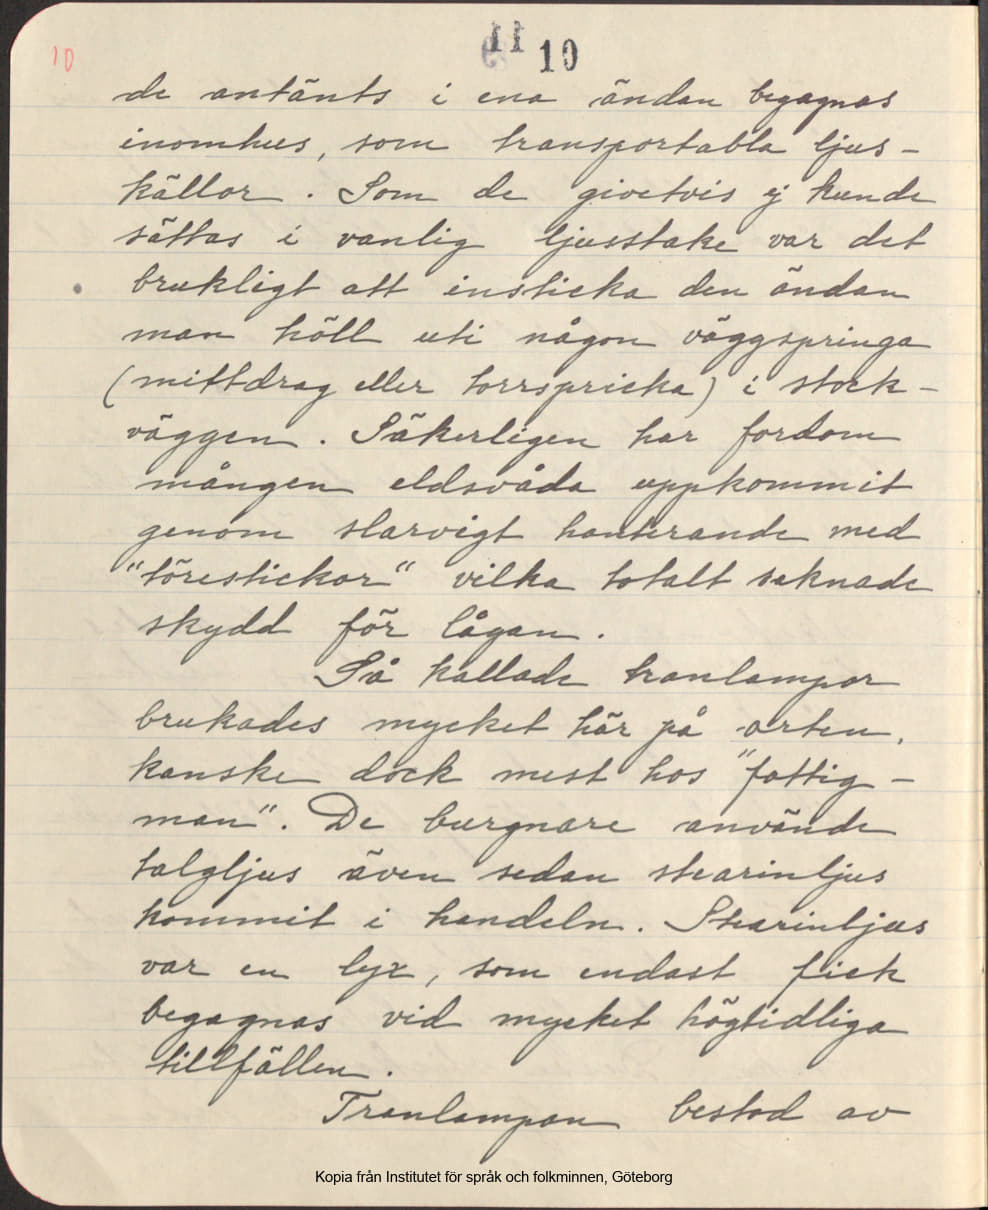 10
11 10
de antänts i ena ändan begagnas
inomhus, som transportabla ljus-
källor. Som de givetvis ej kunde
sättas i vanlig ljusstake var det
brukligt att insticka den ändan
man höll uti någon väggspringa
(mittdrag eller torrspricka) i stock-
väggen. Säkerligen har fordom
mången eldsvåda uppkommit
genom slarvigt hanterande med
"törestickor" vilka totalt saknade
skydd för lågan.
Så kallade tranlampor
brukades mycket här på orten,
kanske dock mest hos "fattig-
man". De burgnare använde
talgljus även sedan stearinljus
kommit i handeln. Stearinljus
var en lyx, som endast fick
begagnas vid mycket högtidliga
tillfällen.
Tranlampan bestod av
Kopia från Institutet för språk och folkminnen, Göteborg